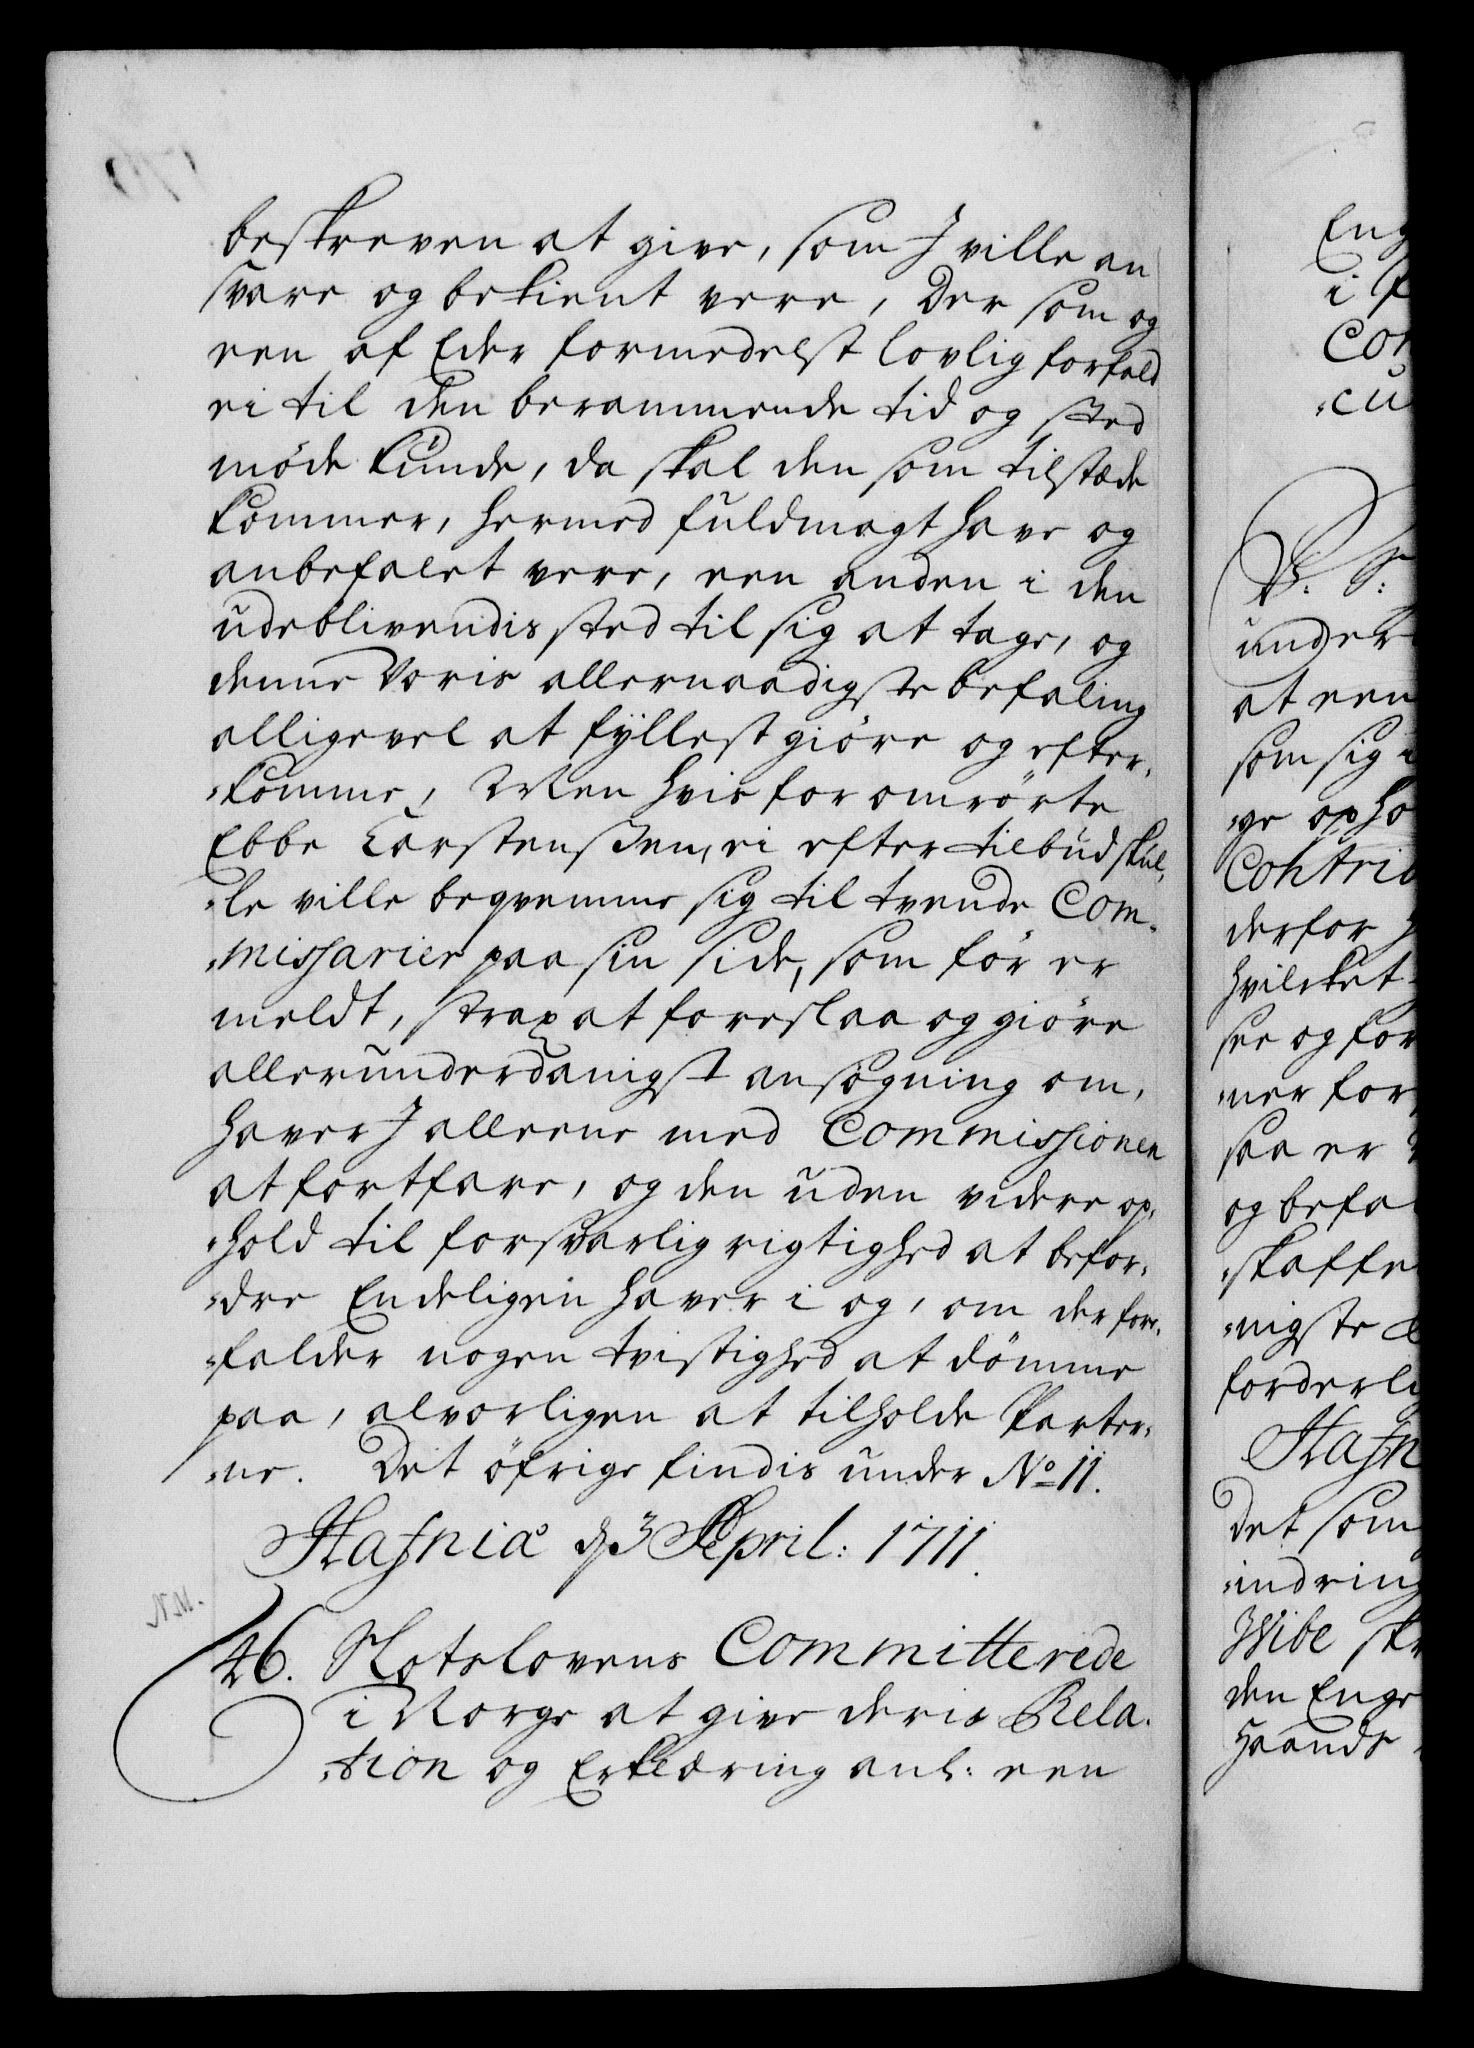 beskreven at give, som J ville an
svare og bekient vere, Der som og
een af Eder formedelst lovlig forfald
ei til den berammende tid og sted
møde kunde, da skal den som tilstæde
kommer, hermed fuldmagt have og
anbefalet vere, een anden i den
udeblivendis sted til sig at tage, og
denne Voris allernaadigste befaling
alligevel at fyllest giøre og efter,
„komme, Men hvis for omrørte
Ebbe Carstensßen, ei efter tilbud skul,
„le ville beqvemme sig til tvende Com„
„missarier paa sin side, som før er
meldt, strax at foreslaa og giøre
allerunderdanigst ansøgning om,
haver J alleene med Commissionen
at fortfare, og den uden videre op,
„hold til forsvarlig rigtighed at befor„
„dre Endeligen haver i og, om der fore„
„falder nogen tvistighed at dømme
paa, alvorligen at tilholde Parter„
„ne. Det øfrige findis under No 11.
Hafniæ d. 3 April: 1711.
46. Slotslovens Committerede
i Norge at give deris Rela„
„tion og Erklæring anl: een
Eng
i
Con
„cu
P. S:
under
at een
som sig
„ge opho
Contrib
derfor
hvilcket
see og for
„ner for
saa er
og befa
„skaffe
„nigste
forderli
Hafn
Det som
„indring
Wibe sk
den Enge
haands